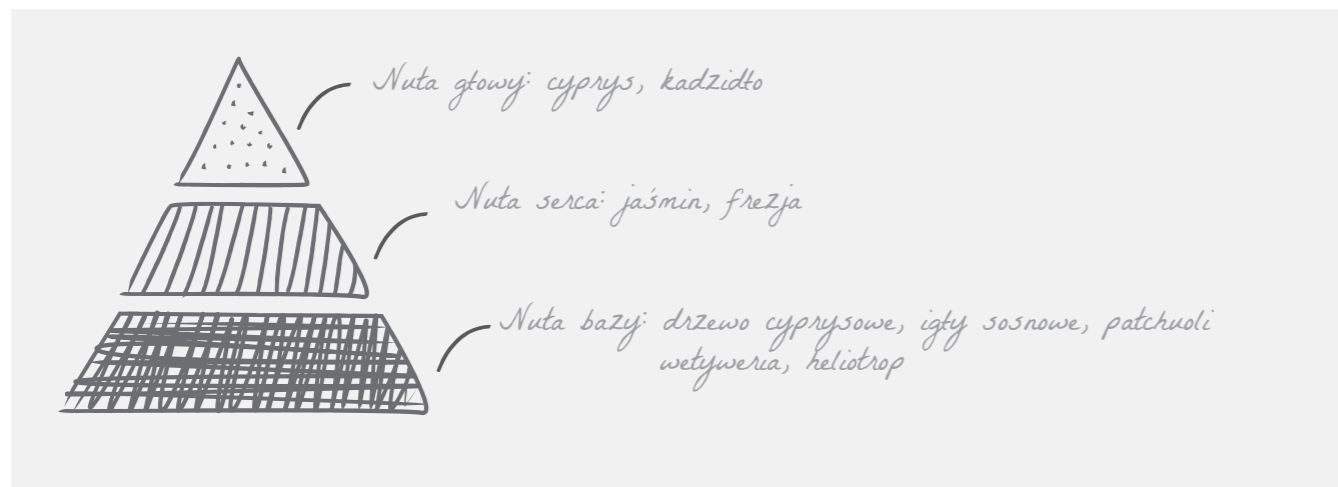 Nuta głowy: cyprys, kadzidło
Nuta serca: jaśmin, frezja
Nuta bazy: drzewo cyprysowe, igły sosnowe, patchuoli
wetyweria, heliotrop